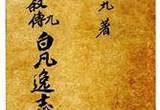 九 著
九
叙傳
白凡逸志